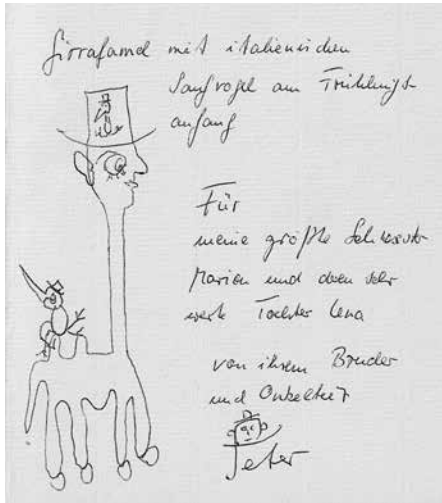 Girrafamel mit italienischen
am Frühlings-
anfang
Für
meine größte Schwester
Marion und deren sehr
werte Tochter Lena
von ihrem Bruder
und Onkeltier
Peter